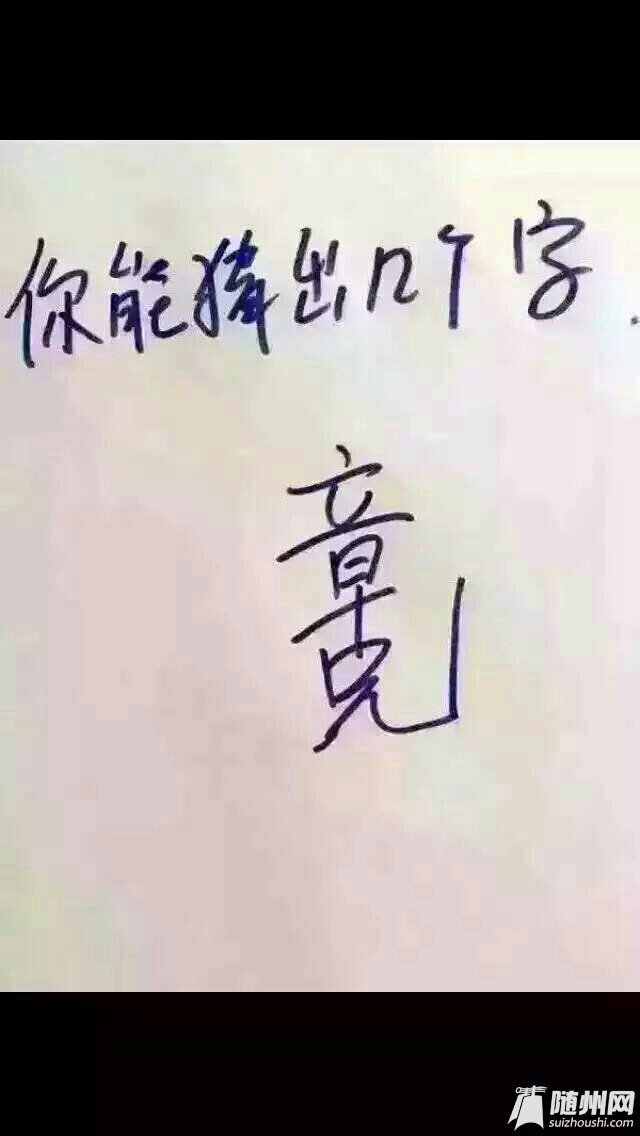 你能猜出几个字.
随州网
suizhoushi.com